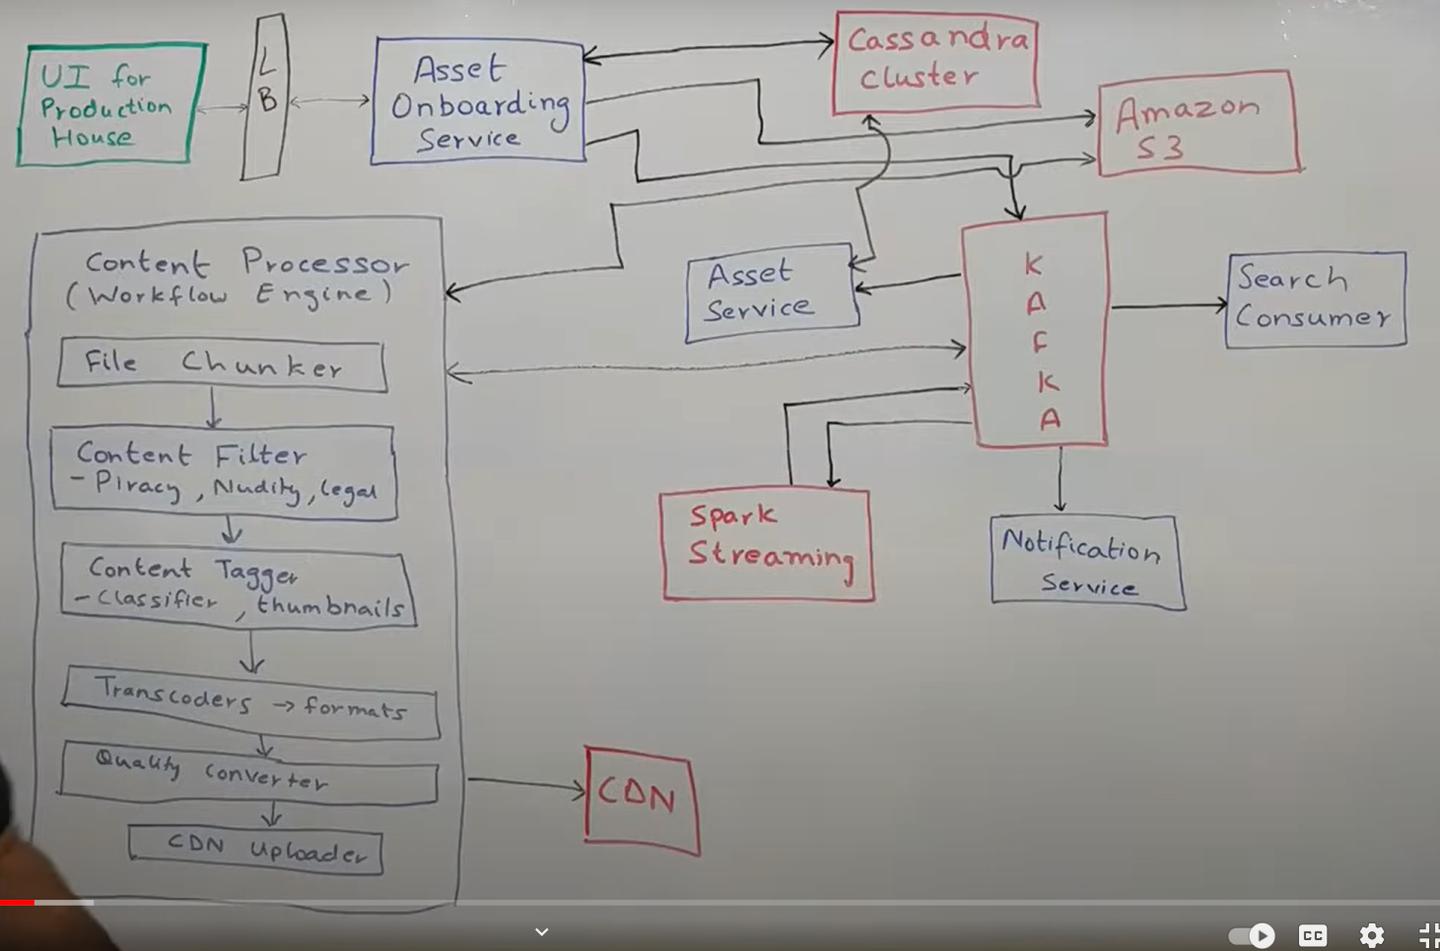 UI for
Production
House
L
B
Asset
Onboarding
Service
Cassandra
Cluster
Amazon
S3
Content Processor
(Workflow Engine)
File Chunker
Content Filter
- Piracy, Nudity, Legal
Content Tagger
- Classifier, thumbnails
Transcoders → formats
Quality Converter
CDN Uploader
Asset
Service
K
A
F
K
A
Search
Consumer
Spark
Streaming
Notification
Service
CDN
CC